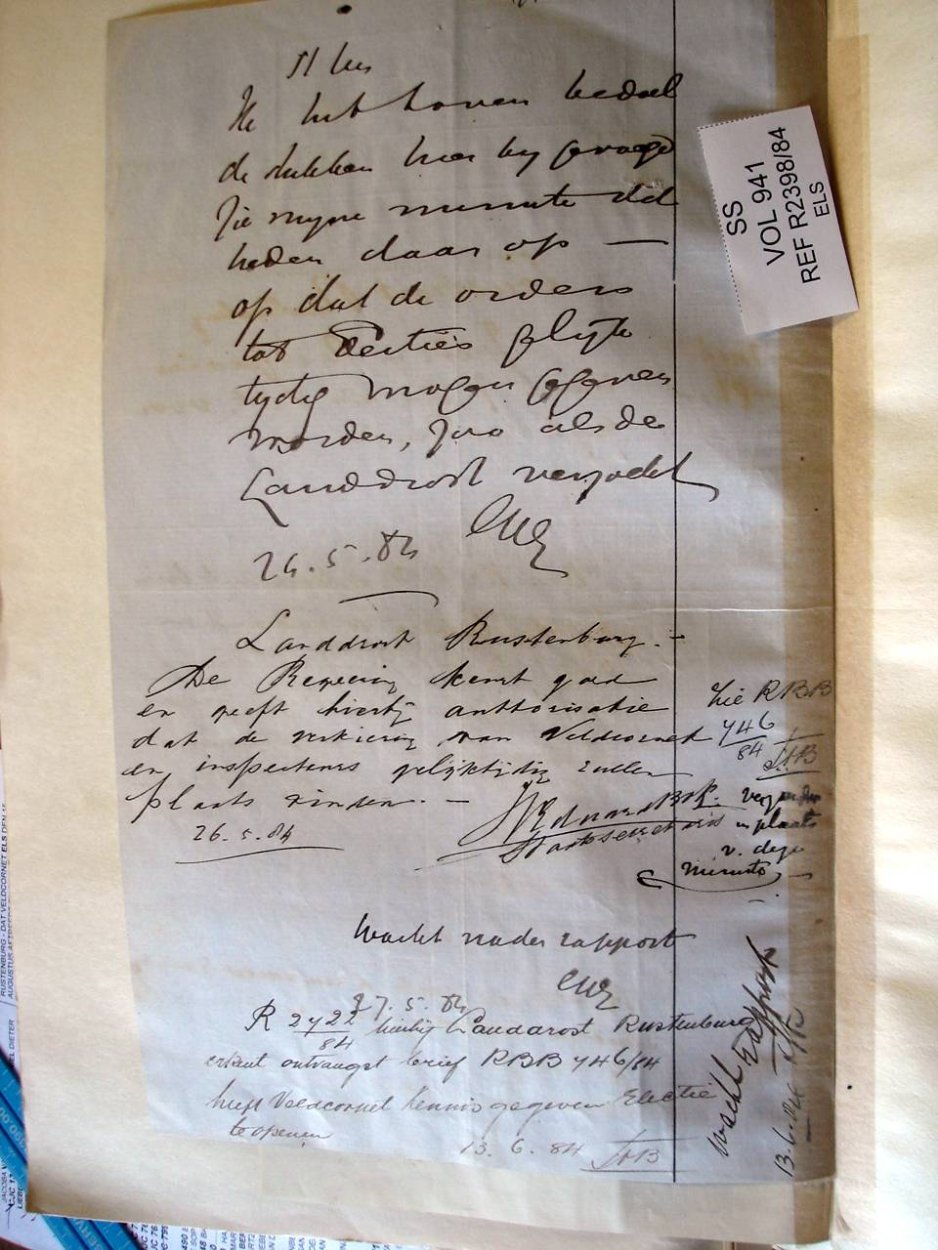 Ik heb boven bedoel
de stukken hier by gevoegd
Zie myne minute dd
heden daar op —
op dat de orders
tot Electies
tydig mogen gegeven
worden, zoo als de
Landdrost verzoekt
26.5.84
Landdrost Rustenburg.-
De Regeering keurt goed
en geeft hierby authorisatie
dat de verkiezing van Veldcornet
en inspecteurs gelijktijdig zullen
plaats vinden. —
26.5.84
Staatssecretaris
Zie RBB
746/84
verzonden
in plaats
v. deze
minute
Wacht nader rapport
27.5.84
R 2722/84 hierbij Landdrost Rustenburg
erkent ontvangst brief RBB 746/84
heeft Veldcornet kennis gegeven Electie
te openen
13.6.84
Wacht Rapport
13.6.84
SS
VOL 941
REF R2398/84
ELS
RUSTENBURG - DAT VELDCORNET ELS DEN